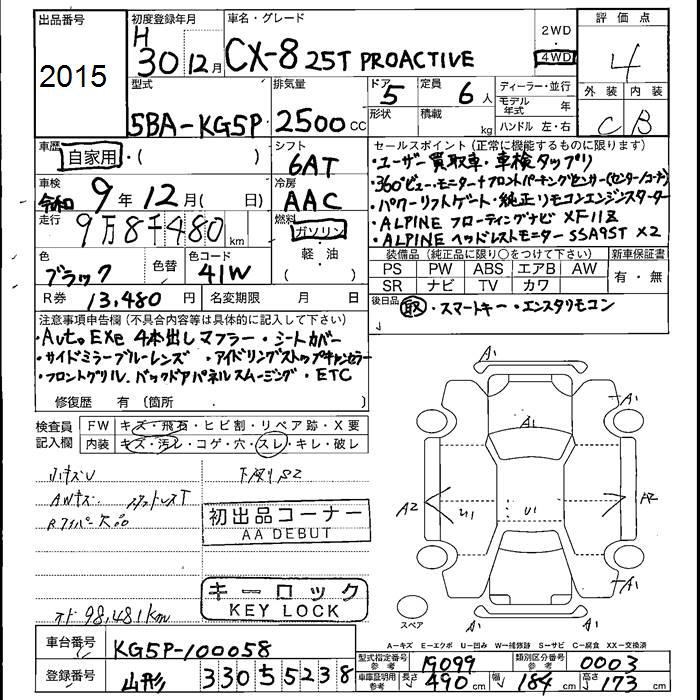 出品番号 初度登録年月 車名・グレード 2WD 評価点
2015 H30 12月 CX-8 25T PROACTIVE 4WD 4
型式 排気量 ドア 5 定員 6人 ディーラー・並行 外装 内装
5BA-KG5P 2500cc 形状 積載 kg モデル年式 年 C B
ハンドル 左・右
車歴 シフト セールスポイント (正常に機能するものに限ります)
自家用・( ) 6AT ・ユーザー買取車・車検タップリ
車検 冷房 ・360°ビューモニター+フロントパーキングセンサー(センター/コーナー)
令和 9年 12月( 日) AAC ・パワーリフトゲート・純正リモコンエンジンスターター
走行 燃料 ・ALPINE フローティングナビ XF11Z
9万8千480km ガソリン ・ALPINE ヘッドレストモニター SSA9ST X2
色 色替 色コード 軽・油 装備品 (純正品に限り〇をつけて下さい) 新車保証書
ブラック 41W ( ) PS PW ABS エアB AW 有・無
SR ナビ TV カワ
R券 13,480円 名変期限 月 日 後日品 取・スマートキー・エンスタリモコン
注意事項申告欄 (不具合内容等は具体的に記入して下さい)
・AutoEXe 4本出しマフラー・シートカバー
・サイドミラーブルーレンズ ・アイドリングストップキャンセラー
・フロントグリル、バックドアパネルスムージング・ETC
修復歴 有 (箇所 )
検査員記入欄 FW キズ・飛石・ヒビ割・リペア跡・X要
内装 キズ・汚レ・コゲ・穴・スレ・キレ・破レ
小キズU
AWキズ
初出品コーナー
AA DEBUT
キーロック
KEY LOCK
98,481km
A1 A1 A1 A1
A2 U1 U1 A2
A1 A1
スペア
A=キズ E=エクボ U=凹み W=補修跡 S=サビ C=腐食 XX=交換済
車台番号 KG5P-100058 型式指定番号 参考 19099 類別区分番号 参考 0003
登録番号 山形 330 ら 5238 車庫証明用 参考 長さ 490cm 幅 184cm 高さ 173cm